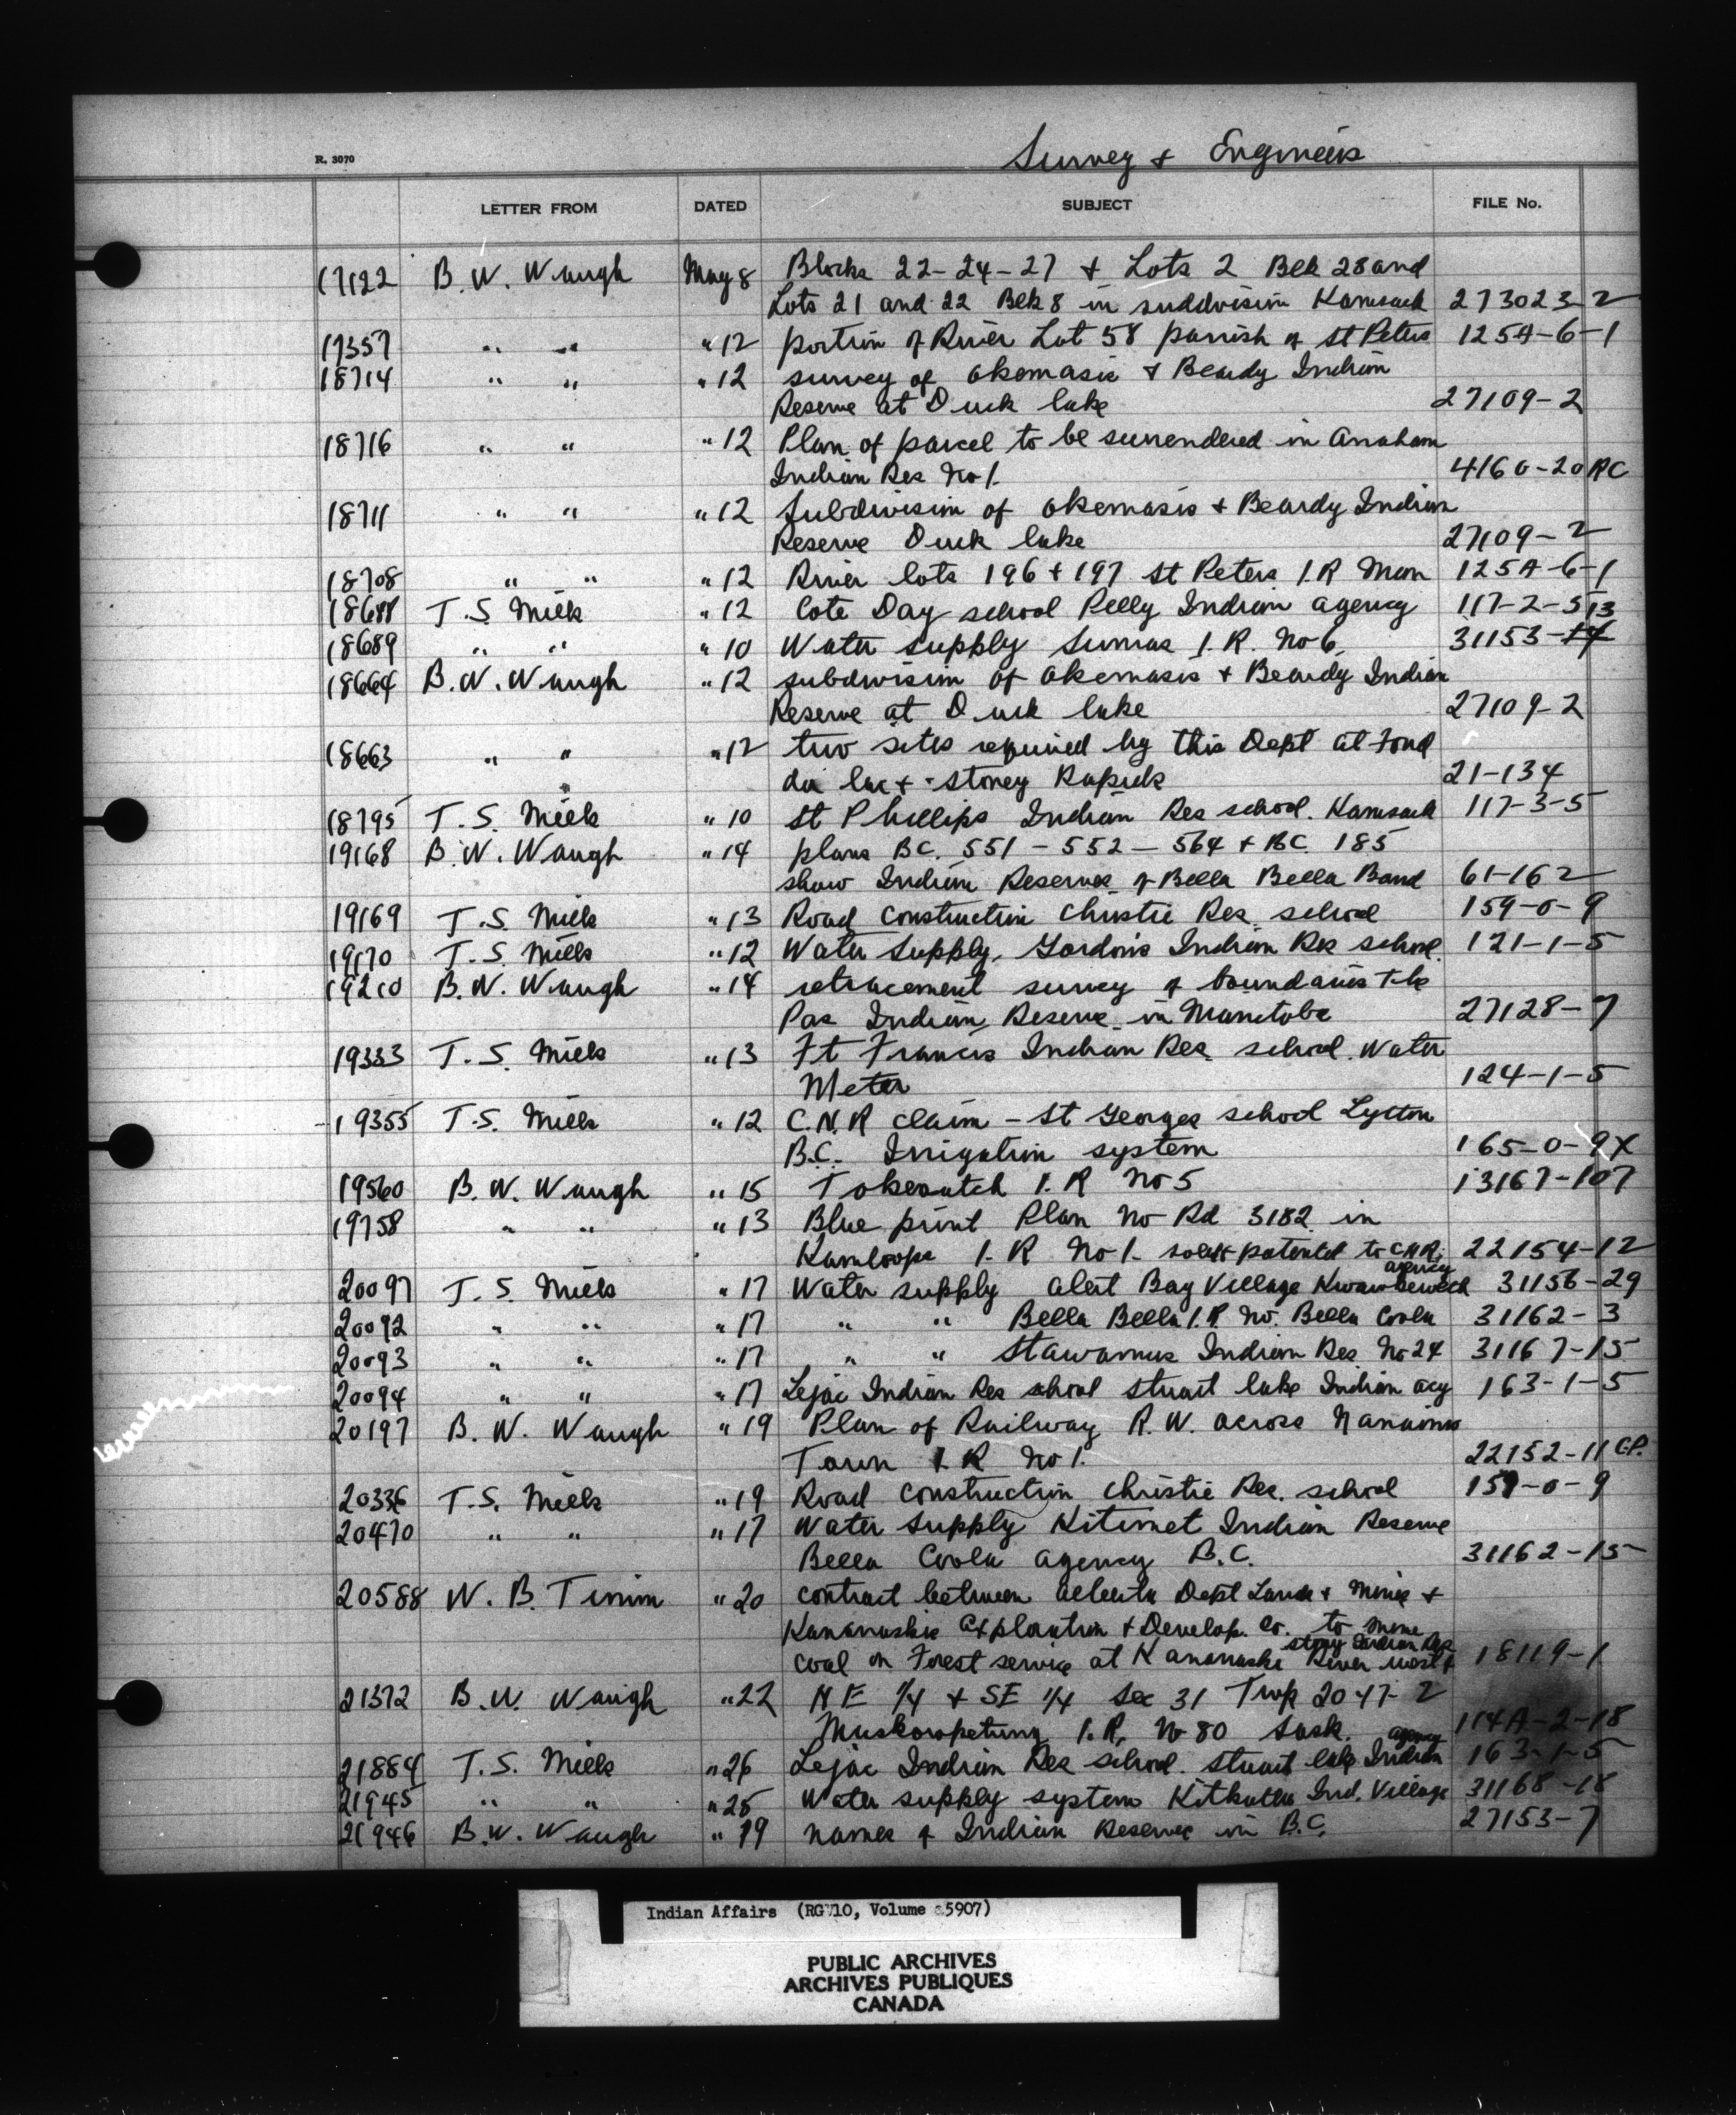 Survey & Engineers
R. 3070
LETTER FROM DATED SUBJECT FILE No.
17122 B. W. Waugh May 8 Blocks 22-24-27 & Lots 2 Blk 28 and
Lots 21 and 22 Blk 8 in suddivision Kamsack 273023-2
17357 " " " 12 portion of River Lot 58 parrish of St Peters 125A-6-1
18714 " " " 12 survey of Okemasis & Beardy Indian
Reserve at Duck lake 27109-2
18716 " " " 12 Plan of parcel to be surrendered in Anaham
Indian Res No 1. 4160-20 RC
18711 " " " 12 Subdivision of Okemasis & Beardy Indian
Reserve Duck lake 27109-2
18708 " " " 12 River lots 196 & 197 St Peters I.R Man 125A-6-1
18688 T. S. Mills " 12 Cote Day school Pelly Indian agency 117-2-5
18689 " " " 10 Water supply Sumas I.R. No 6. 31153-13
18664 B. W. Waugh " 12 subdivision of Okemasis & Beardy Indian
Reserve at Duck lake 27109-2
18663 " " " 12 two sites required by this Dept at Fond
du lac & - Stoney Rapids 21-134
18795 T. S. Mills " 10 St Phillips Indian Res school. Kamsack 117-3-5
19168 B. W. Waugh " 14 plans BC. 551 - 552 - 564 & BC 185
show Indian Reserves of Bella Bella Band 61-162
19169 T. S. Mills " 13 Road Construction Christie Res. school 159-0-9
19170 T. S. Mills " 12 Water Supply, Gordons Indian Res school. 121-1-5
19210 B. W. Waugh " 14 retracement survey of boundaries The
Pas Indian Reserve in Manitoba 27128-7
19333 T. S. Mills " 13 Ft Francis Indian Res. school. Water
Meter 124-1-5
19355 T. S. Mills " 12 C.N.R claim - St Georges school Lytton
B.C. Irrigation system 165-0-9X
19560 B. W. Waugh " 15 I. R No 5 13167-107
19758 " " " 13 Blue print Plan No Rd 3182 in
Kamloops I. R No 1. patented to C.N.R. 22154-12
agency
20097 T. S. Mills " 17 Water supply Alert Bay Village Kwawkewlth 31156-29
20092 " " " 17 " " Bella Bella I.R No. Bella Coola 31162-3
20093 " " " 17 " " Stawamus Indian Res No 24 31167-15
20094 " " " 17 Lejac Indian Res school Stuart lake Indian acy 163-1-5
20197 B. W. Waugh " 19 Plan of Railway R.W. across Nanaimo
Town I. R No 1. 22152-11 G.P.
20336 T. S. Mills " 19 Road Construction Christie Res. school 159-0-9
20470 " " " 17 Water Supply Kitimet Indian Reserve
Bella Coola agency B.C. 31162-15
20588 W. B. Timm " 20 contract between Alberta Dept Lands & Mines &
Kananaskis Exploration & Develop. Co. to mine
stony Indian Res
coal on Forest service at Kananaskis River west of 18119-1
21372 B. W. Waugh " 22 NE 1/4 & SE 1/4 Sec 31 Twp 20 47- 2
Muskowpetung I.R. No 80 Sask. 114A-2-18
agency
21884 T. S. Mills " 26 Lejac Indian Res school. Stuart lake Indian 163-1-5
21945 " " " 25 Water supply system Ind. Village 31168-18
21946 B. W. Waugh " 19 names of Indian Reserve in B.C. 27153-7
Indian Affairs (RG 10, Volume 5907)
PUBLIC ARCHIVES
ARCHIVES PUBLIQUES
CANADA